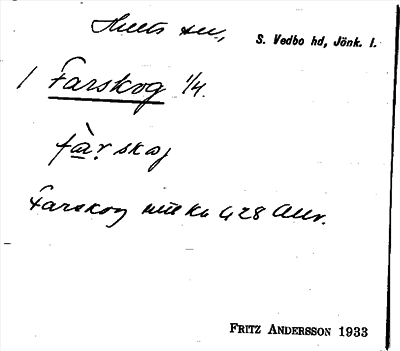 Hults sn, S. Vedbo hd, Jönk. l.
1 Farskog 1/4.
fàr skoj
Farskog mtl Kb 428 Allr.
FRITZ ANDERSSON 1933